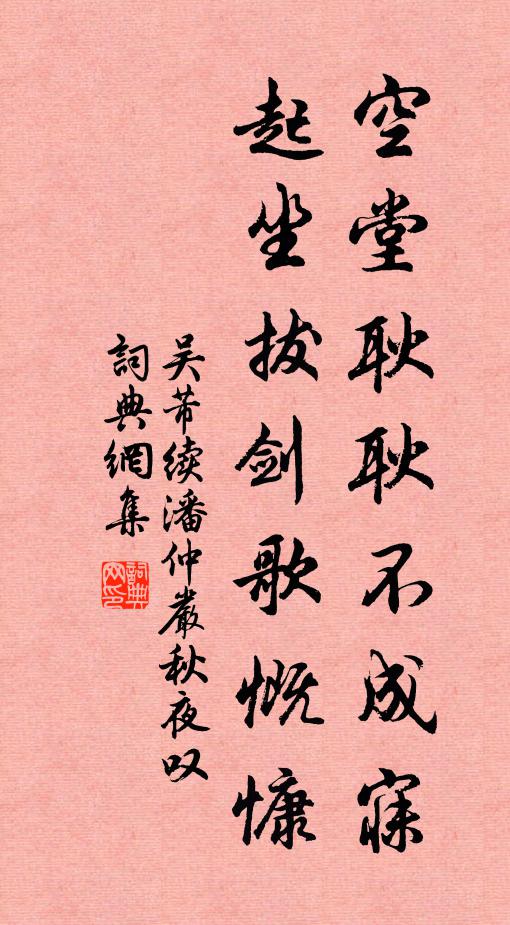 空堂耿耿不成寐
起坐拔剑歌慨慷
吴芾续潘仲嚴秋夜叹
詞典網集
詞典网印